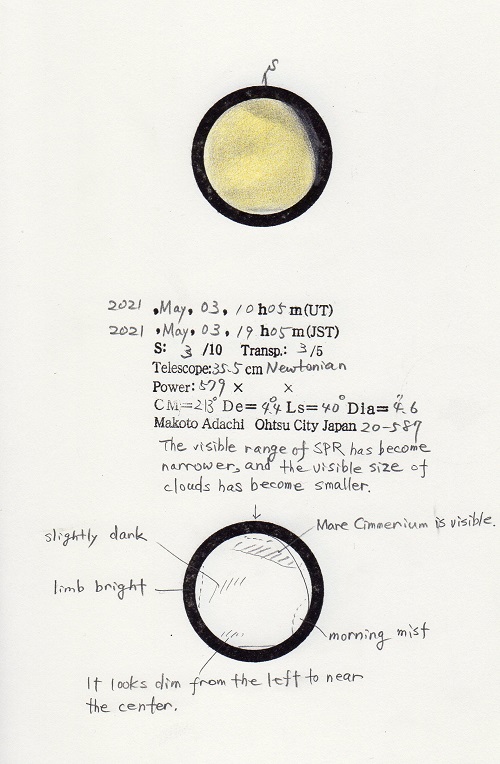 S
2021 , May, 03, 10 h05 m(UT)
2021 , May, 03, 19 h05 m(JST)
S: 3 /10 Transp.: 3 /5
Telescope:35.5 cm Newtonian
Power: 579 × ×
CM=213° De= 4.°4 Ls=40° Dia= 4."6
Makoto Adachi Ohtsu City Japan 20-587
The visible range of SPR has become
narrower, and the visible size of
clouds has become smaller.
Mare Cimmerium is visible.
slightly dark
limb bright
morning mist
It looks dim from the left to near
the center.